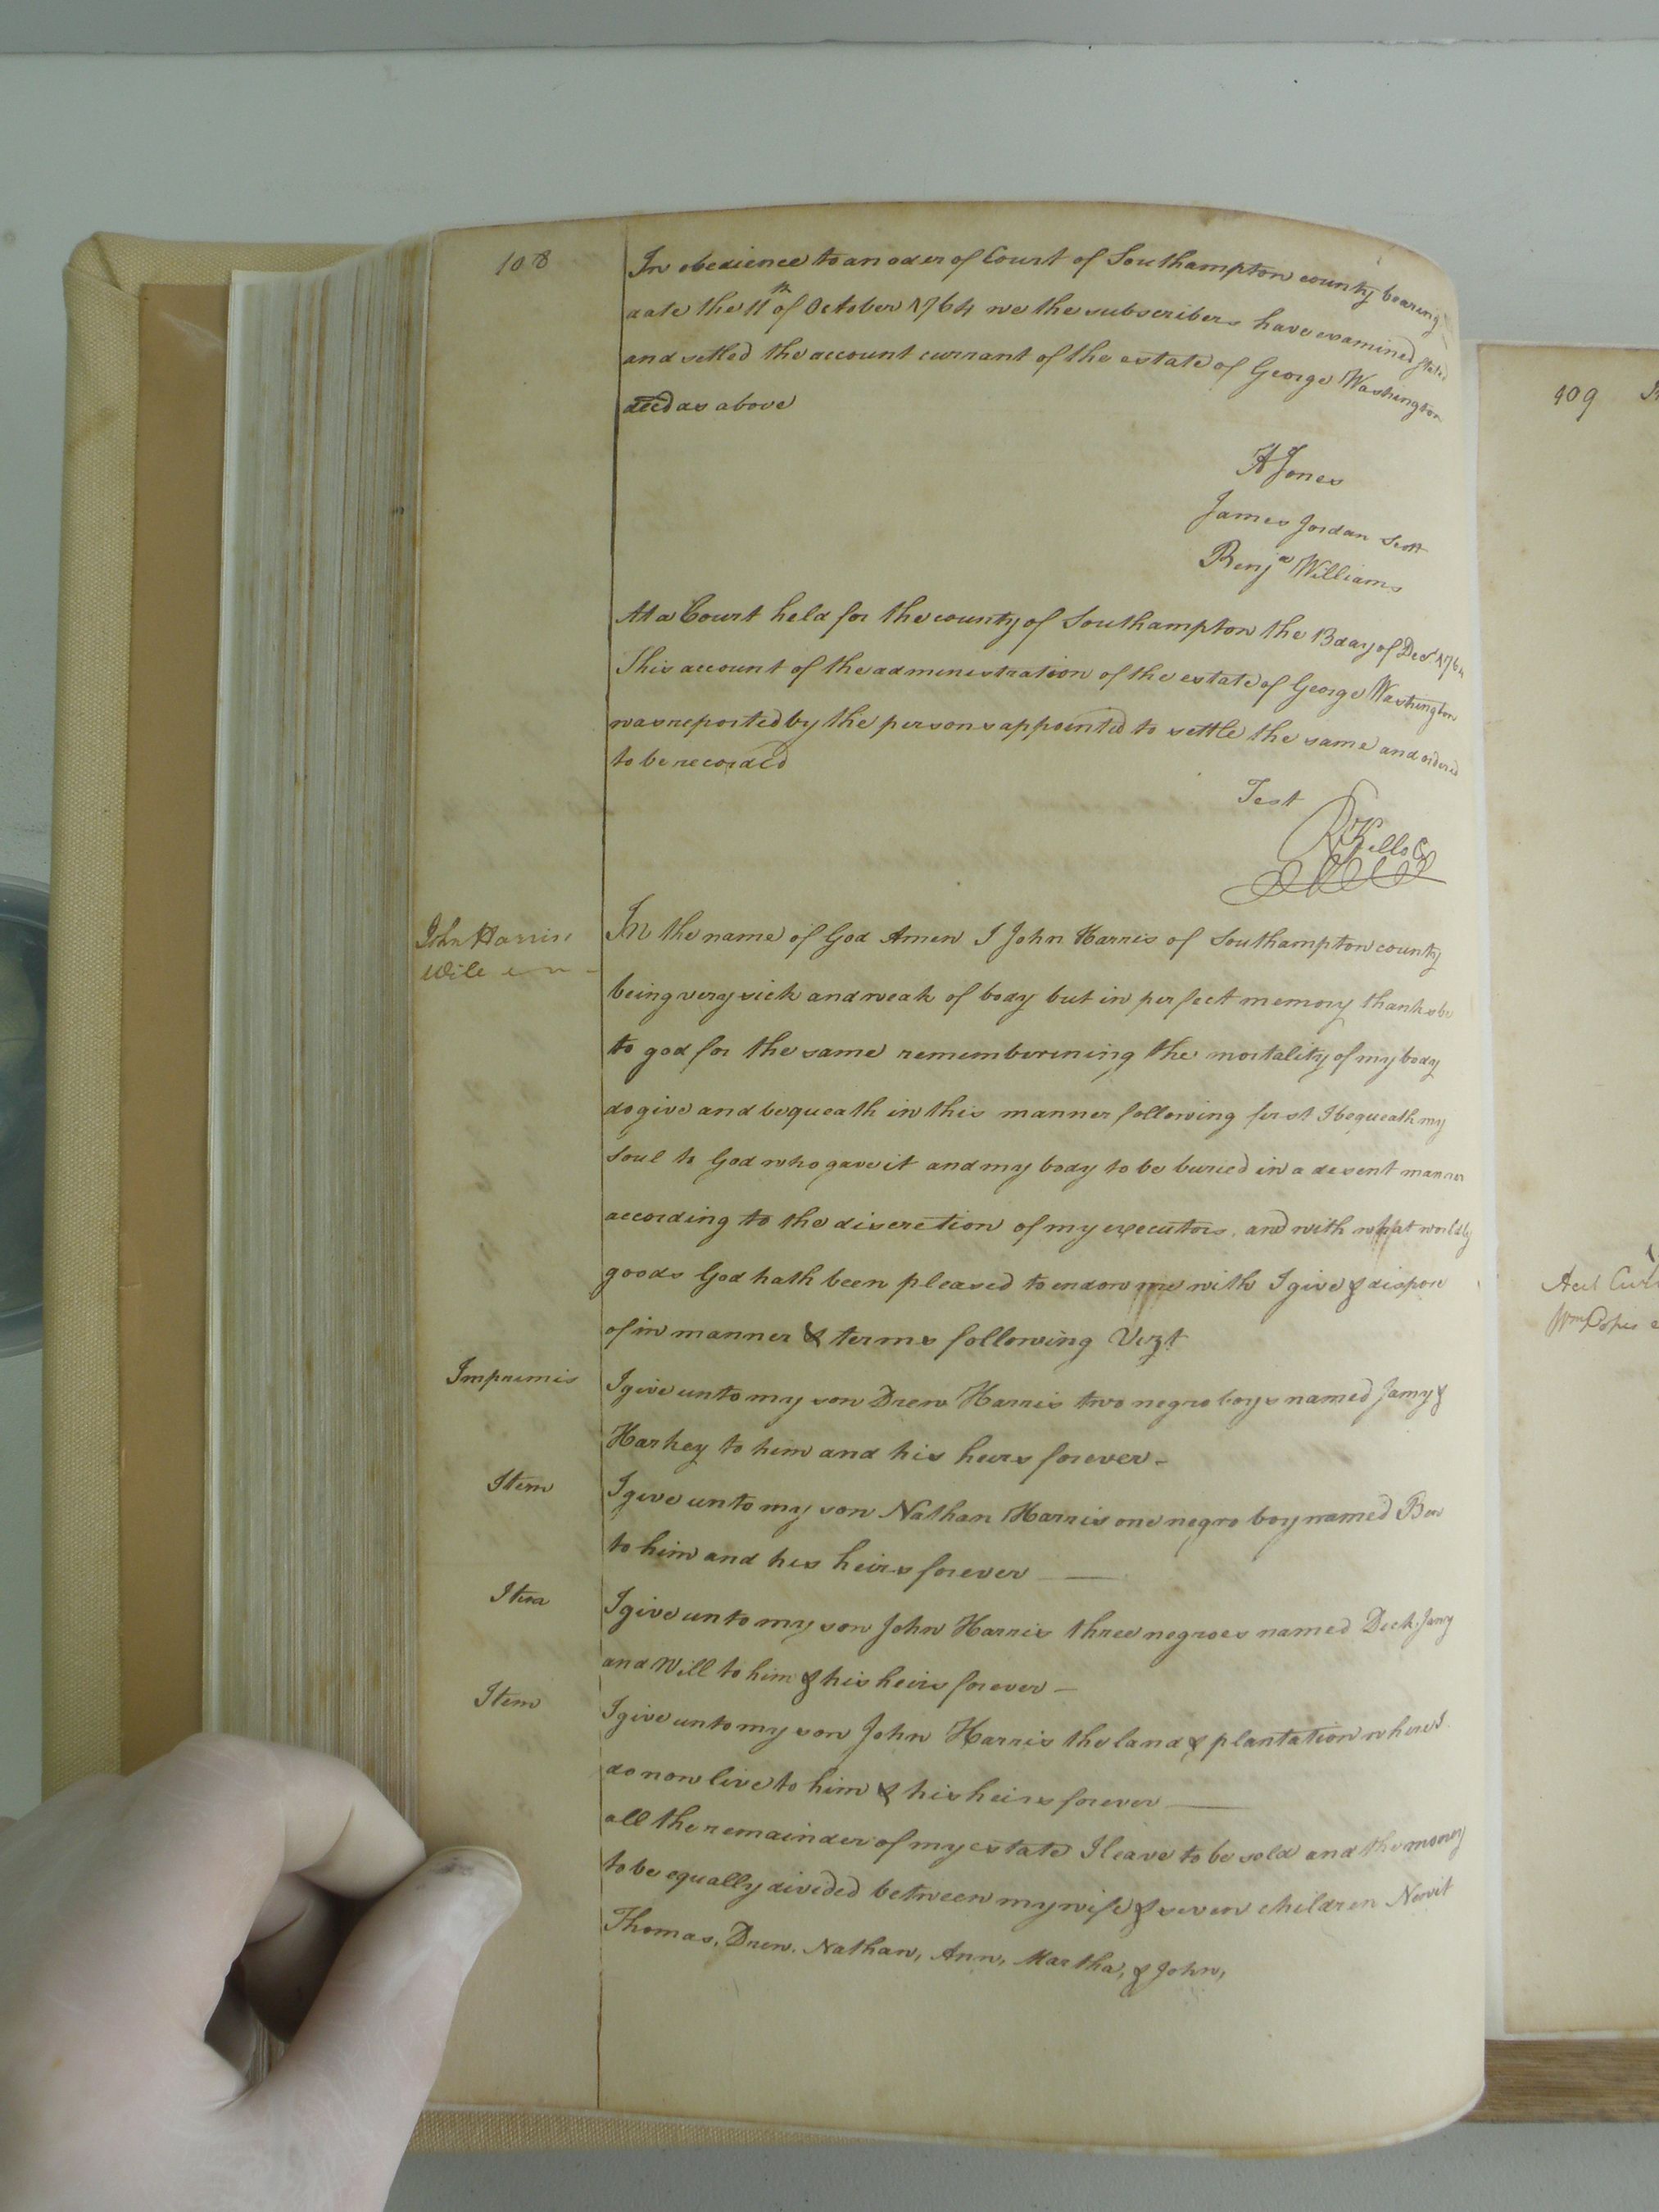 108
In obedience to an oder of Court of Southampton county bearing
date the 11th of October 1764 we the subscribers have examined stated
and setled the account currant of the estate of George Washington
decd as above
A Jones
James Jordan Scott
Benja Williams
At a Court held for the county of Southampton the 13 day of Decr. 1764
This account of the administration of the estate of George Washington
was reported by the persons appointed to settle the same and ordered
to be recorded
Test
R Kello C
John Harris
Will
In the name of God Amen I John Harris of Southampton county
being very sick and weak of body but in perfect memory thanks be
to god for the same rememberining the mortality of my body
do give and bequeath in this manner following first I bequeath my
Soul to God who gave it and my body to be buried in a desent manner
according to the discretion of my executors, and with what worldly
goods God hath been pleased to endow me with I give & dispose
of in manner & terms following Vizt
Impremis I give unto my son Drew Harris two negro boys named Jamy &
Harkey to him and his heirs forever -
Item I give unto my son Nathan Harris one negro boy named Ben
to him and his heirs forever
Item I give unto my son John Harris three negroes named Dick, Jamy
and Will to him & his heirs forever -
Item I give unto my son John Harris the land & plantation where I
do now live to him & his heirs forever
all the remainder of my estate I leave to be sold and the money
to be equally divided between my wife & seven children Newit
Thomas, Drew, Nathan, Ann, Martha, & John,
409